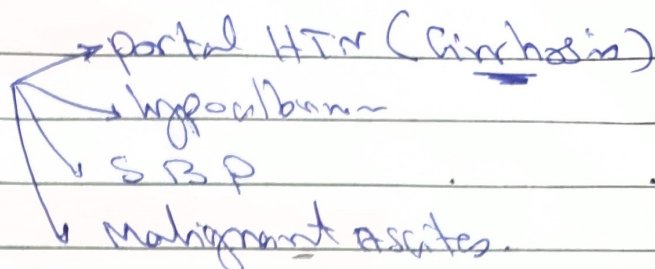 portal HTN (Cirrhosis)
hypoalbumin
SBP
Malignant Ascites.